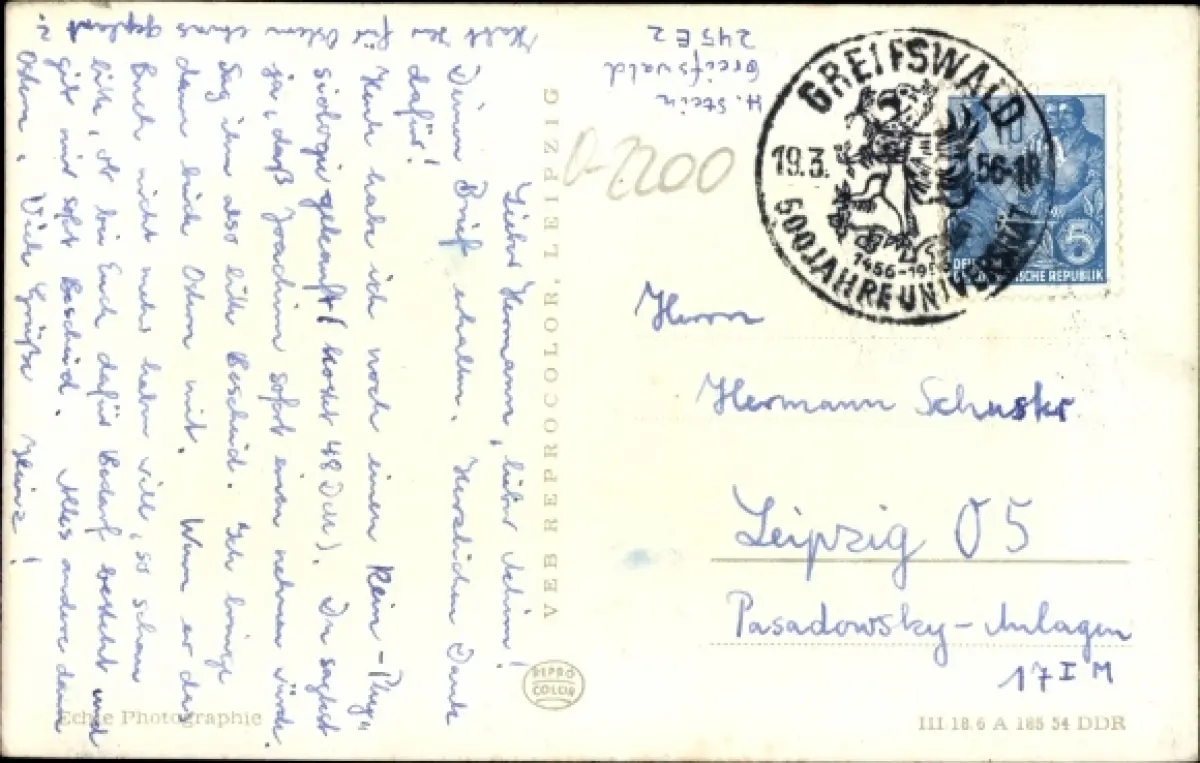 Lieber Hermann, lieber Achim!
Deinen Brief erhalten. Herzlichen Dank
dafür!
Heute habe ich noch einen Rein-Phy-
siologie gekauft (kostet 48 DM). Du sagtest
ja, daß Joachim sofort einen nehmen würde.
Sag ihm also bitte Bescheid. Ich bringe
dann Ostern mit. Wenn er das
Buch nicht mehr haben will, so schau
bitte, ob bei Euch dafür Bedarf besteht und
gib mir sofort Bescheid. Alles andere dann
Ostern. Viele Grüße Heinz!
Habt Ihr für Ostern etwas geplant?
H. Stein
Greifswald
245 E 2
D-2200
GREIFSWALD
19.3. 56-18
1456-195
500 JAHRE UNIVERSITÄT
5
DEUTSCHE
DEMOKRATISCHE REPUBLIK
Herrn
Hermann Schuster
Leipzig O 5
Pasadowsky-Anlagen
17 I M
VEB REPROCOLOR, LEIPZIG
REPRO
COLOR
Echte Photographie
III 18 6 A 185 54 DDR